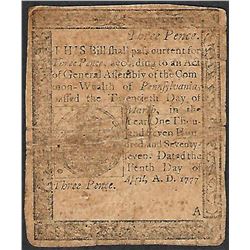 Three Pence.
THIS Bill shall pass current for
Three Pence, according to an Act
of General Assembly of the Com-
mon-Wealth of Pennsylvania,
passed the Twentieth Day of
March, in the
Year One Thou-
sand Seven Hund-
red and Seventy-
seven. Dated the
Tenth Day of
April, A. D. 1777.
Three Pence.
A